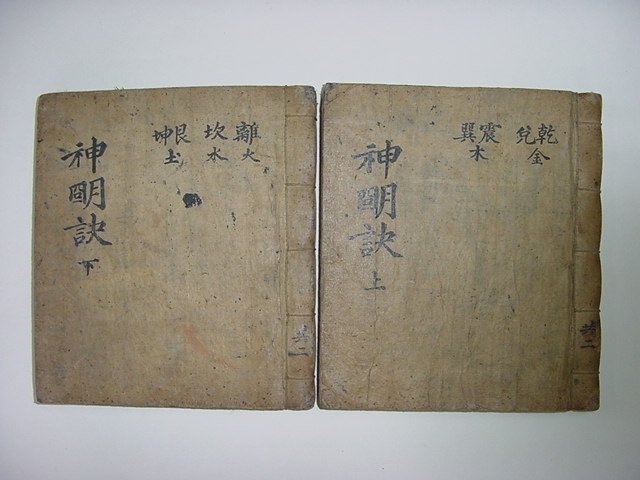 乾兌金
震巽木
神朙訣上
共二
離火
坎水
艮坤土
神朙訣下
共二